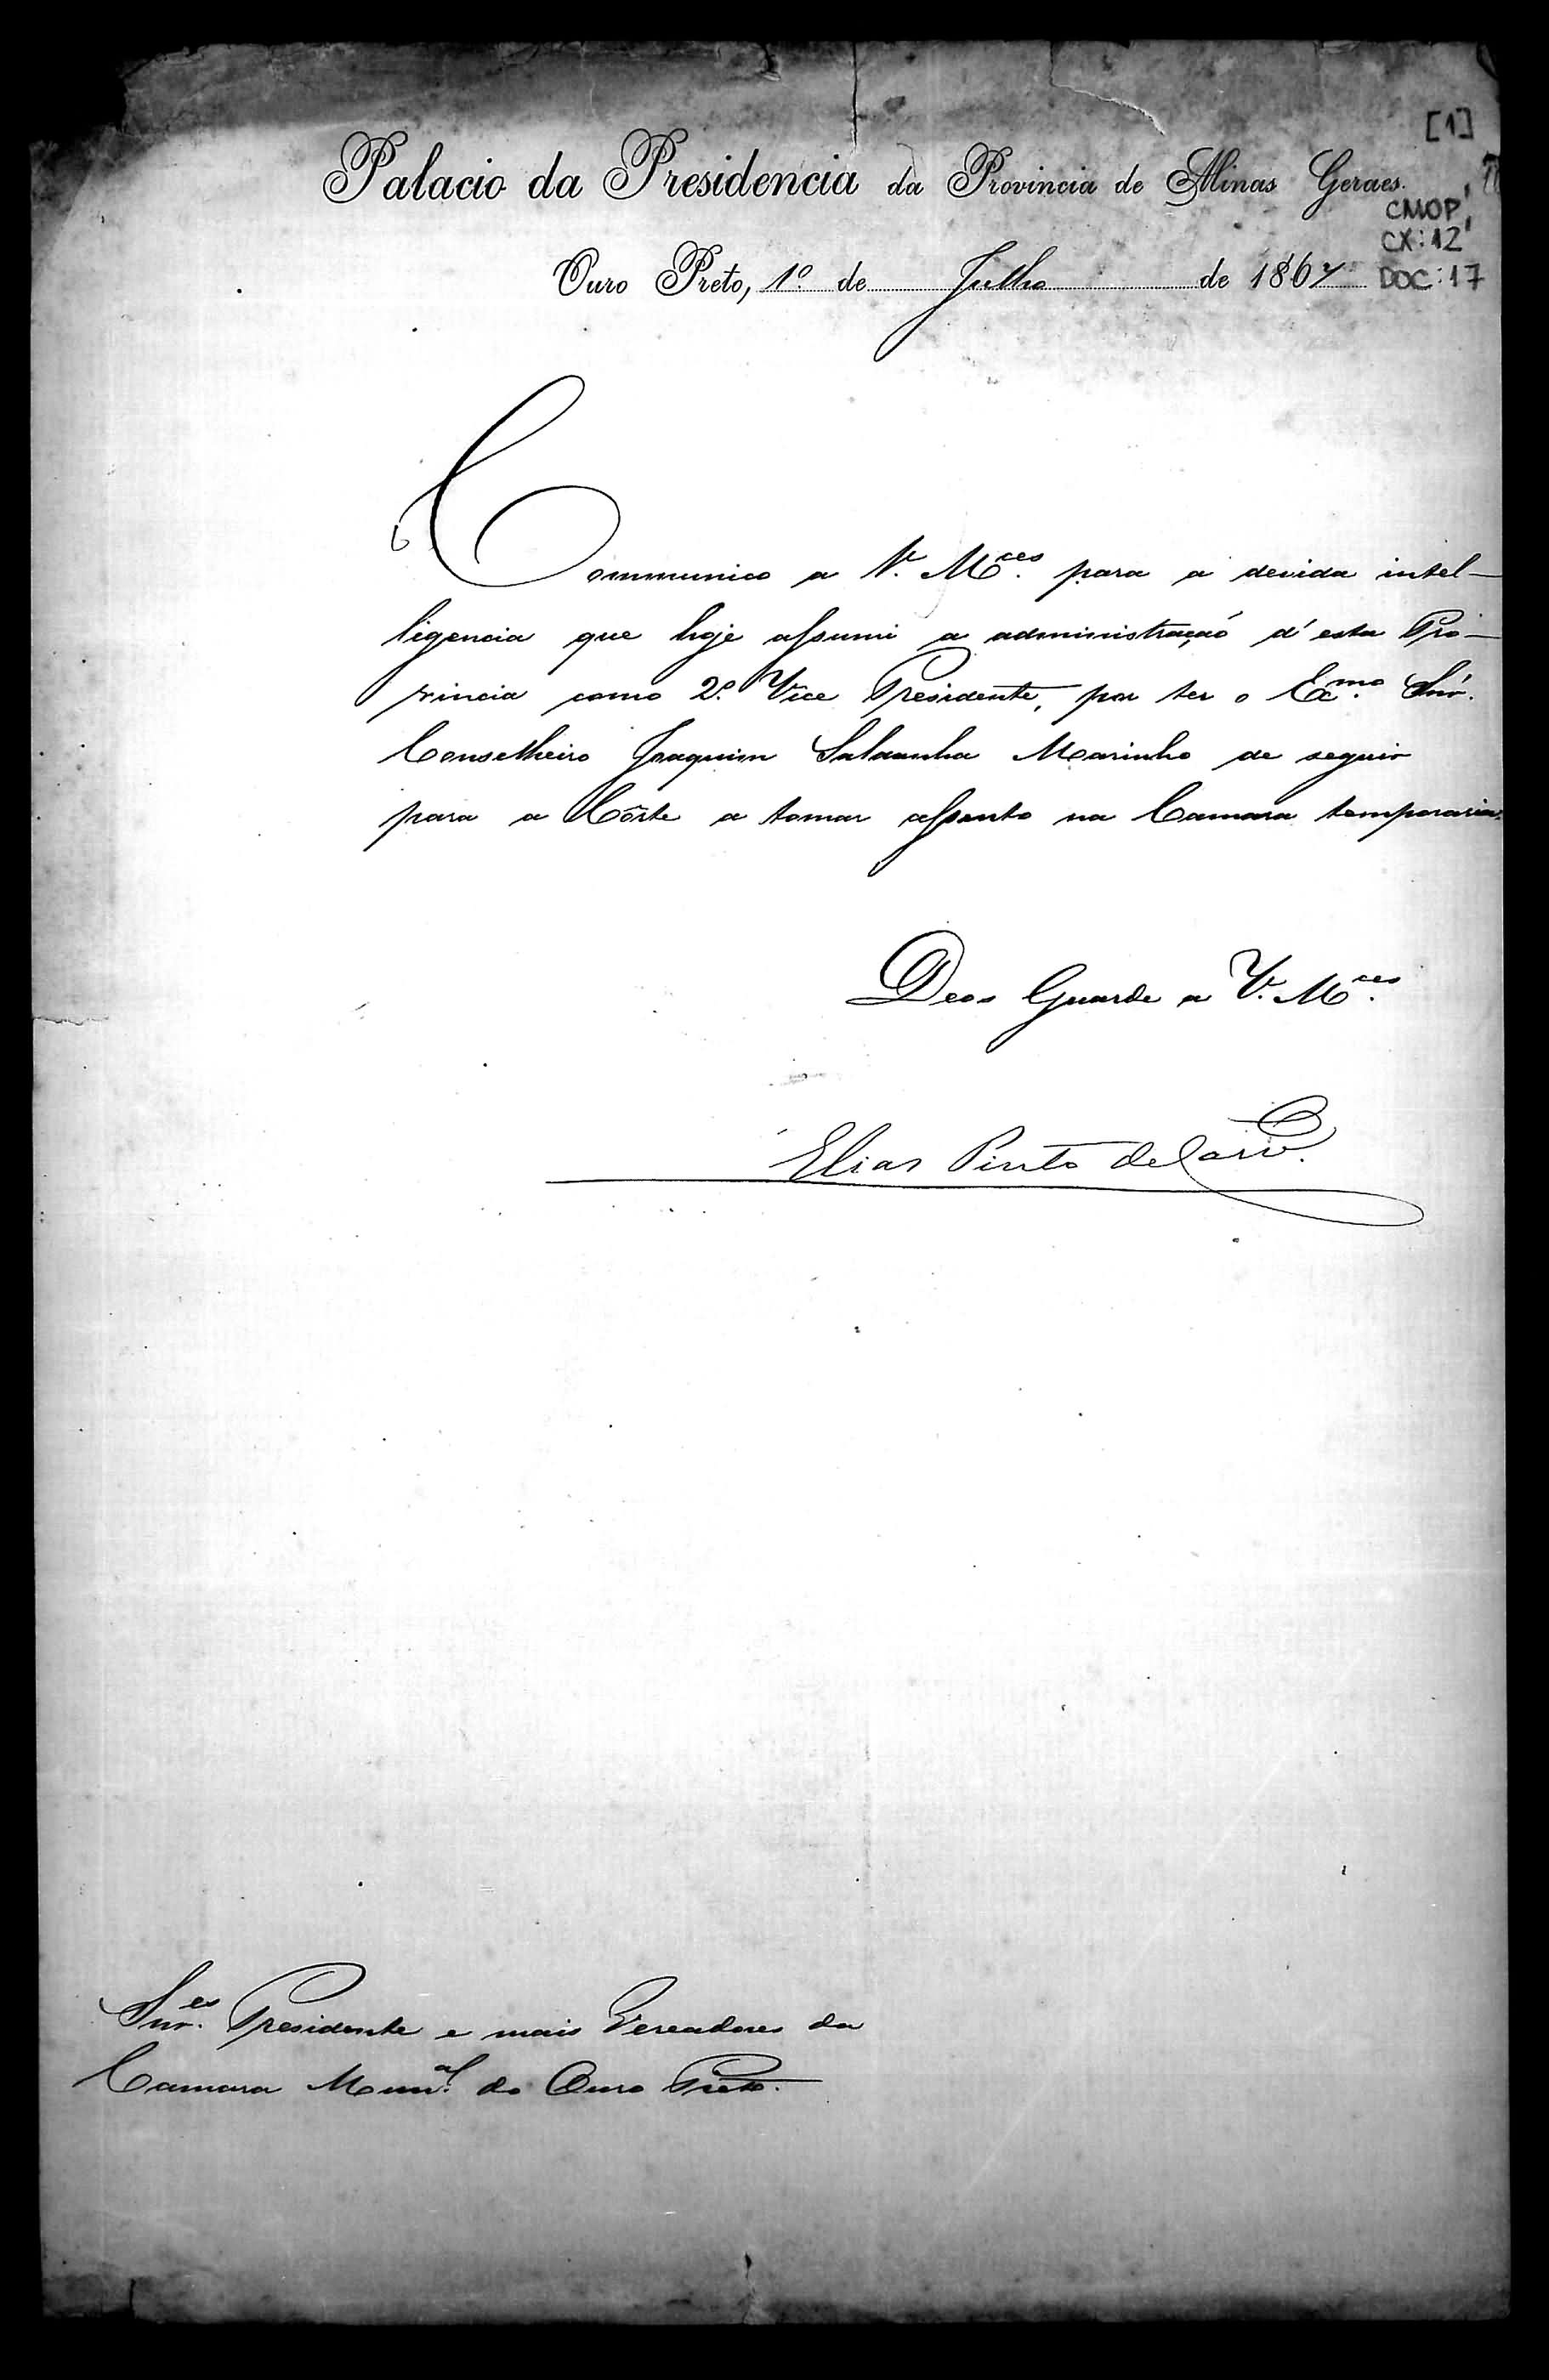 [1]
Palacio da Presidencia da Provincia de Minas Geraes.
CMOP,
CX: 12
Ouro Preto, 1º de Julho de 1867
DOC: 17
Communico a V. M.ces para a devida intel-
ligencia que hoje assumi a administração d'esta Pro-
vincia como 2º Vice Presidente, por ter o Ex.mo Snr.
Conselheiro Joaquim Saldanha Marinho de seguir
para a Côrte a tomar assento na Camara temporaria.
Deos Guarde a V. M.ces
Elias Pinto de Carv.º
Snr.es Presidente e mais Vereadores da
Camara Mun.al do Ouro Preto.